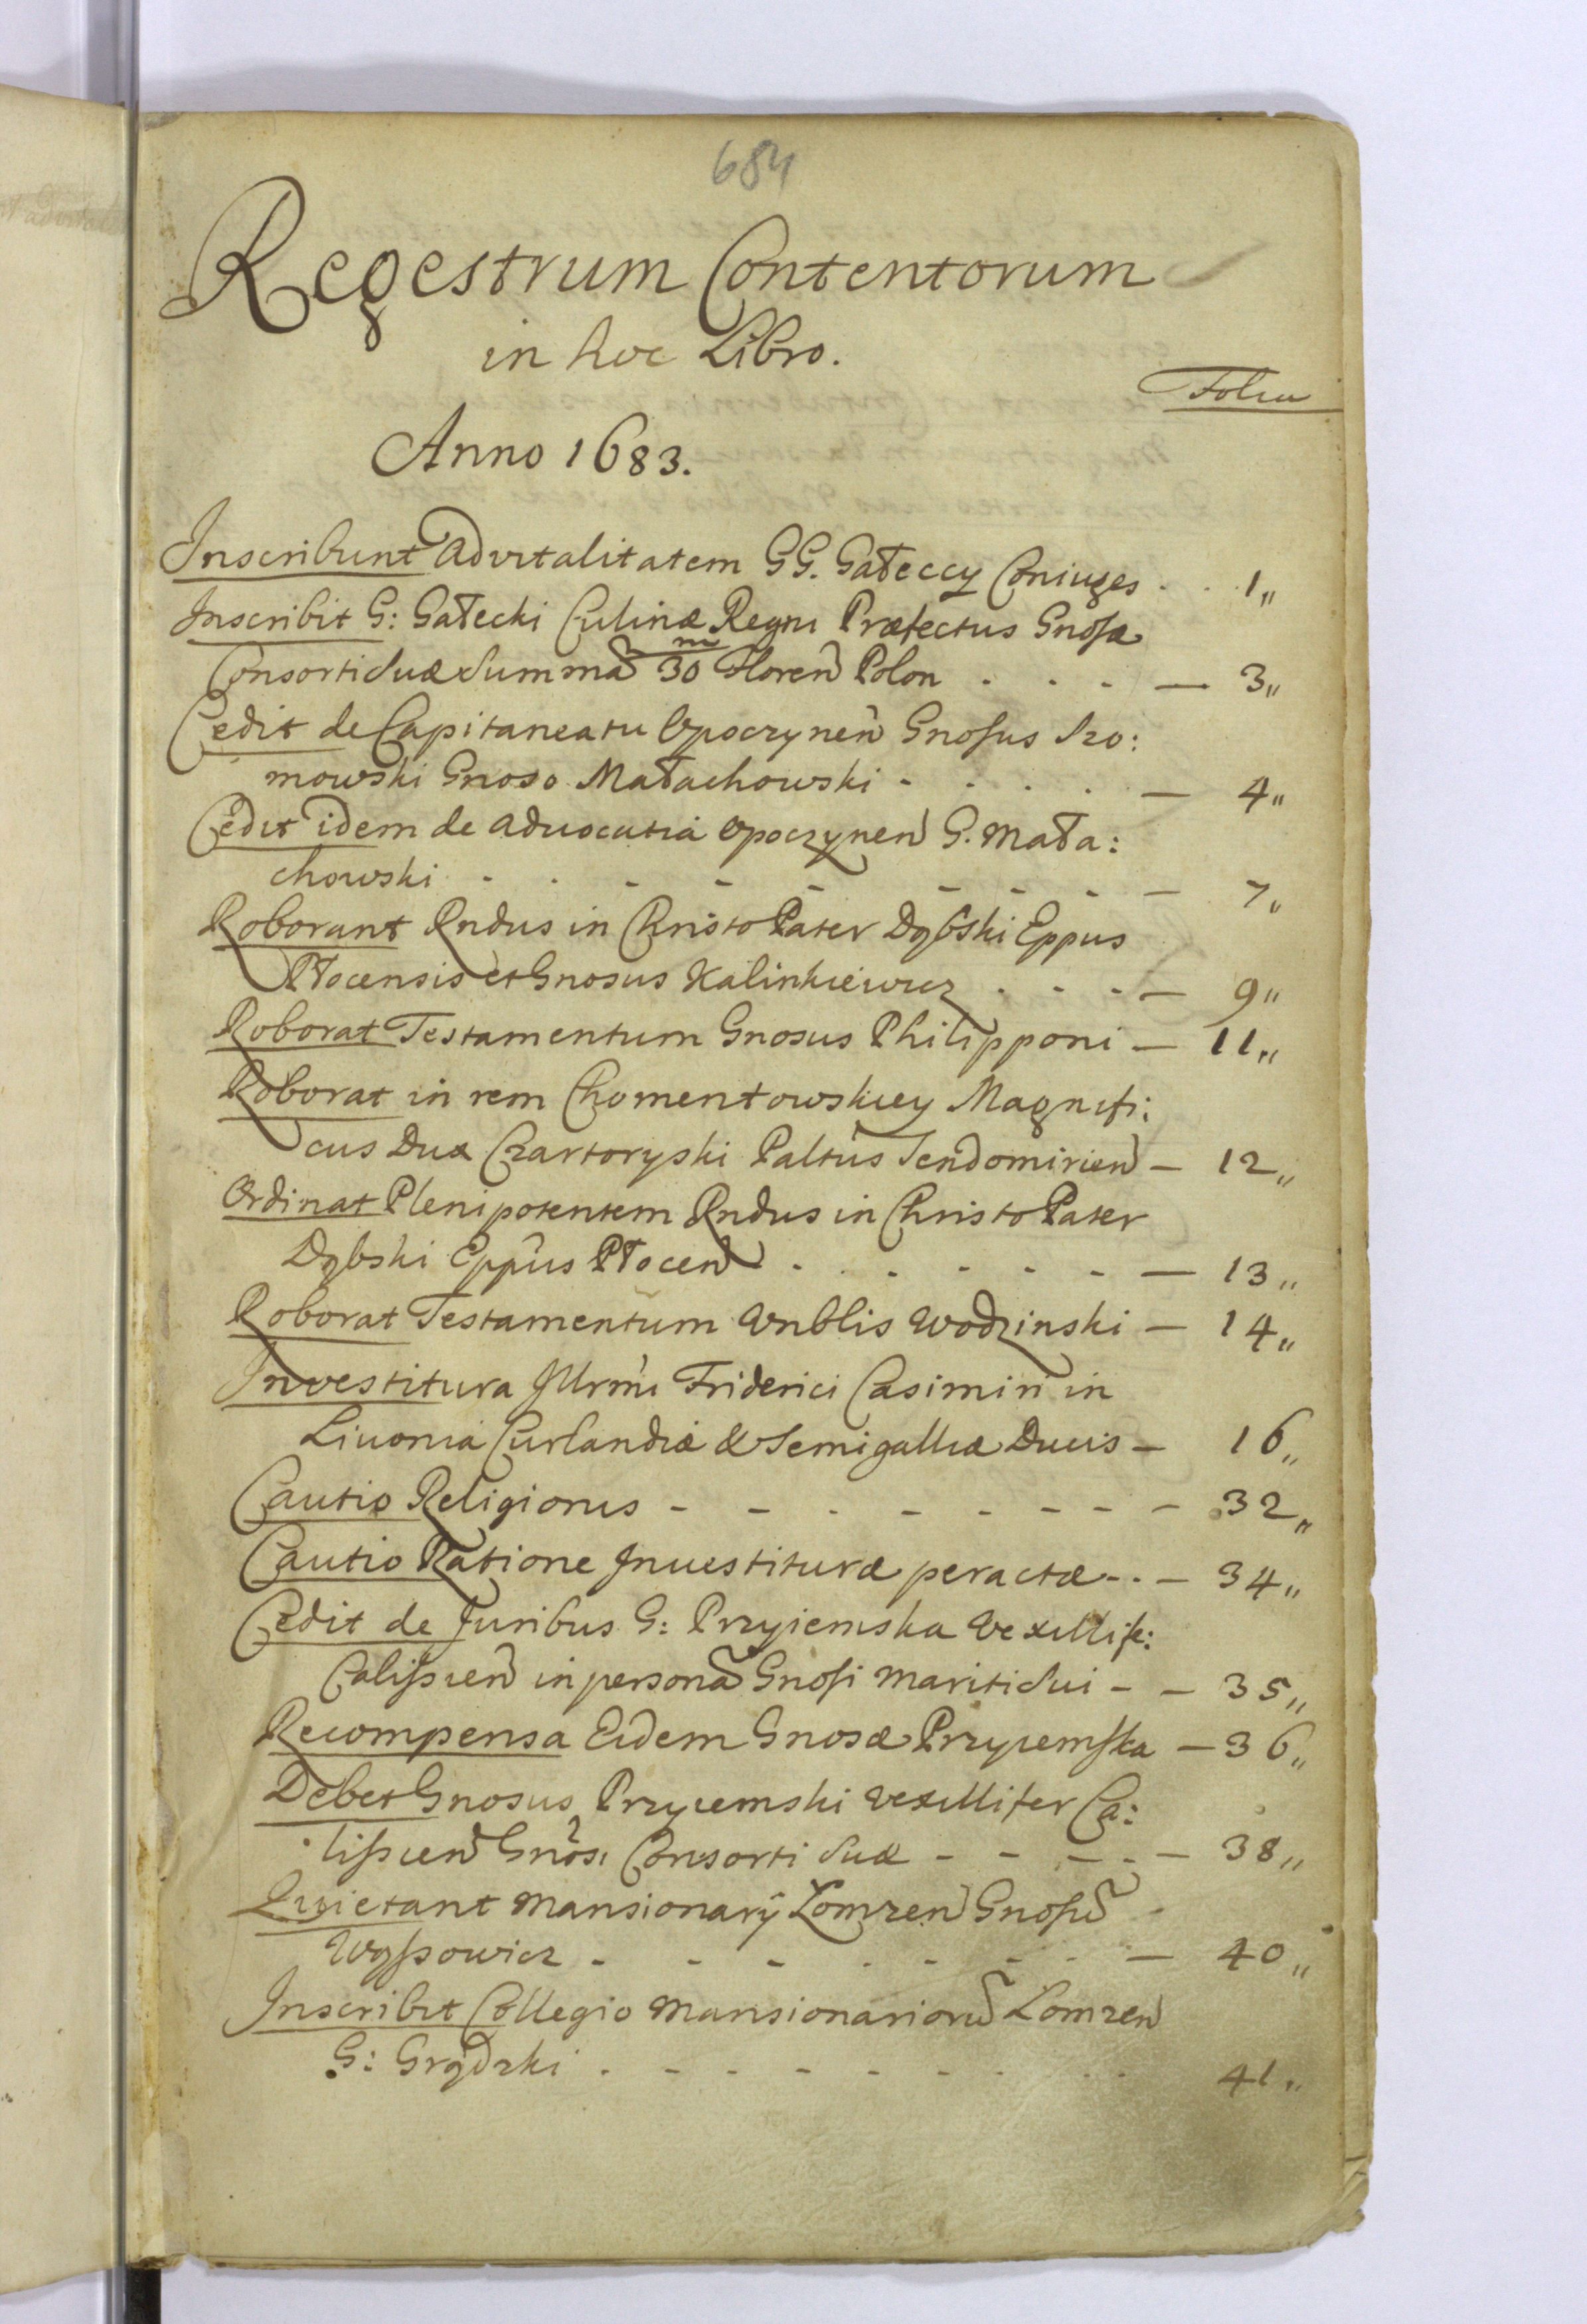 684
Regestrum Contentorum
in hoc Libro.
Folia
Anno 1683.
Inscribunt Advitalitatem GG. Gałeccy Coniuges . . . 1,,
Inscribit G: Gałecki Culinæ Regni Præfectus Gnosæ
Consorti Suæ Summã 30 m Floreñ Polon . . . — 3,,
Cedit de Capitaneatu Opoczyneñ Gnosus Szo:
mowski Gnoso Małachowski - . . . . — 4,,
Cedit idem de Aduocatia Opoczyneñ G. Mała:
chowski - . - - - - - - — 7,,
Roborant Rndus in Christo Pater Dąbski Eppus
Płocensis et Gnosus Kalinkiewicz . . . — 9,,
Roborat Testamentum Gnosus Philipponi — 11,,
Roborat in rem Chomentowskiey Magnifi:
cus Dux Czartoryski Paltus Sendomirień — 12,,
Ordinat Plenipotentem Rndus in Christo Pater
Dąbski Eppus Płoceñ . . . - - - — 13,,
Roborat Testamentum Vnblis Wodzinski — 14,,
Investitura Illrmi Friderici Casimiri in
Liuonia Curlandiæ & Semigalliæ Ducis — 16,,
Cautio Religionis - - - - - - - - 32,,
Cautio Ratione Inuestituræ peractæ - . — 34,,
Cedit de Juribus G: Przyiemska Vexillife:
Calissień in personã Gnosi Mariti Sui - — 35,,
Recompensa Eidem Gnosæ Przyiemska — 36,,
Debet Gnosus Przyiemski Vexillifer Ca:
lissień Gnosi Consorti Suæ - - - - — 38,,
Quietant Mansionarij Łomzeñ Gnosũ
Wyssowicz - - - . - - - — 40,,
Inscribit Collegio Mansionariorũ Lomzeñ
G: Grądzki . - - - - - . . . 41,,